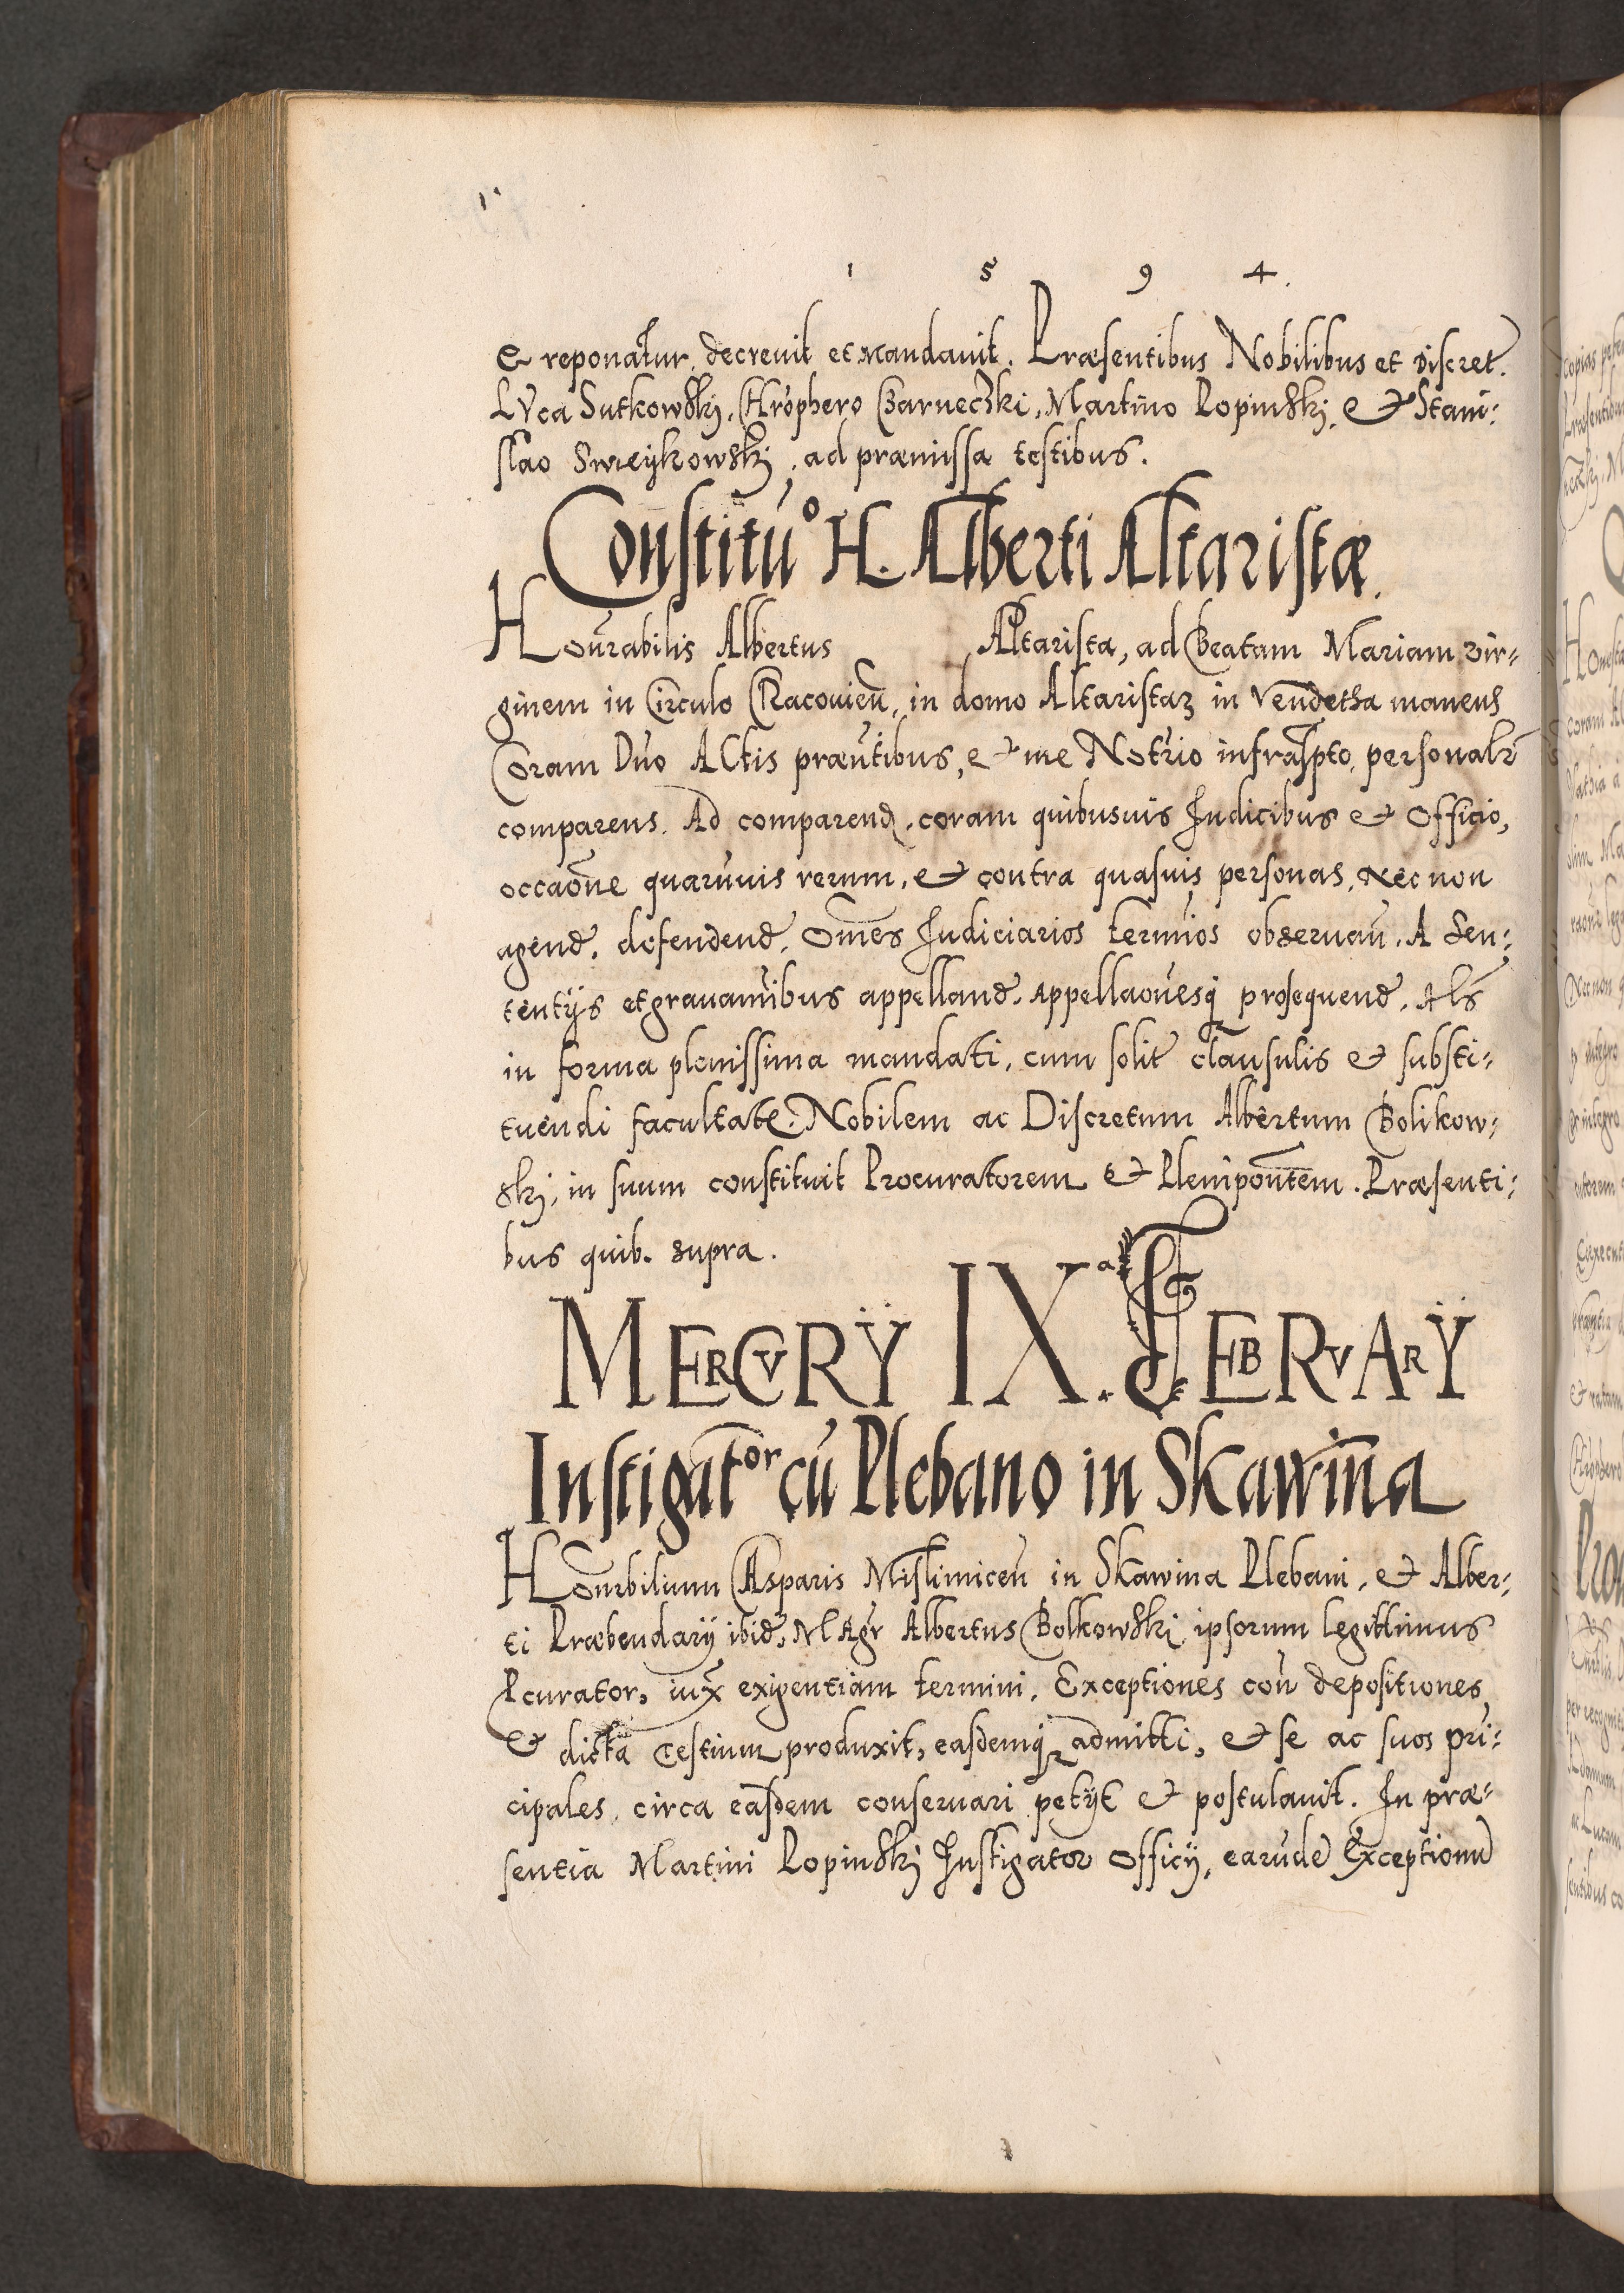 1 5 9 4.
& reponatur, decrevit et mandavit. Præsentibus Nobilibus et discret.
LVca Sutkowskj, Chrōphero Czarneczki, Martino Popinskj, & Stani:
slao Smeykowskj, ad præmissa testibus.
Constitū° H. Alberti Altaristæ.
Honūrabilis Albertus Altarista, ad Beatam Mariam vir=
ginem in Circulo Cracovień, in domo Altaristaꝝ in Vendetha manens
Coram Dno Actis præn̄tibus, & me Notrio infrascpto, personalr̄
comparens. Ad comparend, coram quibusvis Judicibus & Officio,
occaōne quarūvis rerum, & contra quasvis personas, Nec non
agend, defendend, Om̄es Judiciarios termi̅os observań, A Sen:
tentÿs et gravami̅bus appelland, Appellaōnesq prosequend, Als̄
in forma plenissima mandati, cum solit clausulis & substi=
tuendi facultate. Nobilem ac Discretum Albertum Bolikow=
skj, in suum constituit Procuratorem & Plenipoñtem. Præsenti:
bus quib. supra.
MERCVRŸ IX.ª FEBRVARŸ
Instigat͞or cū Plebano in Skawin̄a
Hon̄rbilium Casparis Mislimiceń in Skawina Plebani, & Alber=
ti Præbendarÿ ibid, MAgr Albertus Bolkowskj ipsorum legittimus
Pcurator, iux̄ exigentiam termini, Exceptiones con̄ depositiones,
& dicta testium produxit, easdemq admitti, & se ac suos pri̅:
cipales, circa easdem conservari petÿt & postulavit. In præ=
sentia Martini Popinskj Instigator Officÿ, earūde Exceptionū